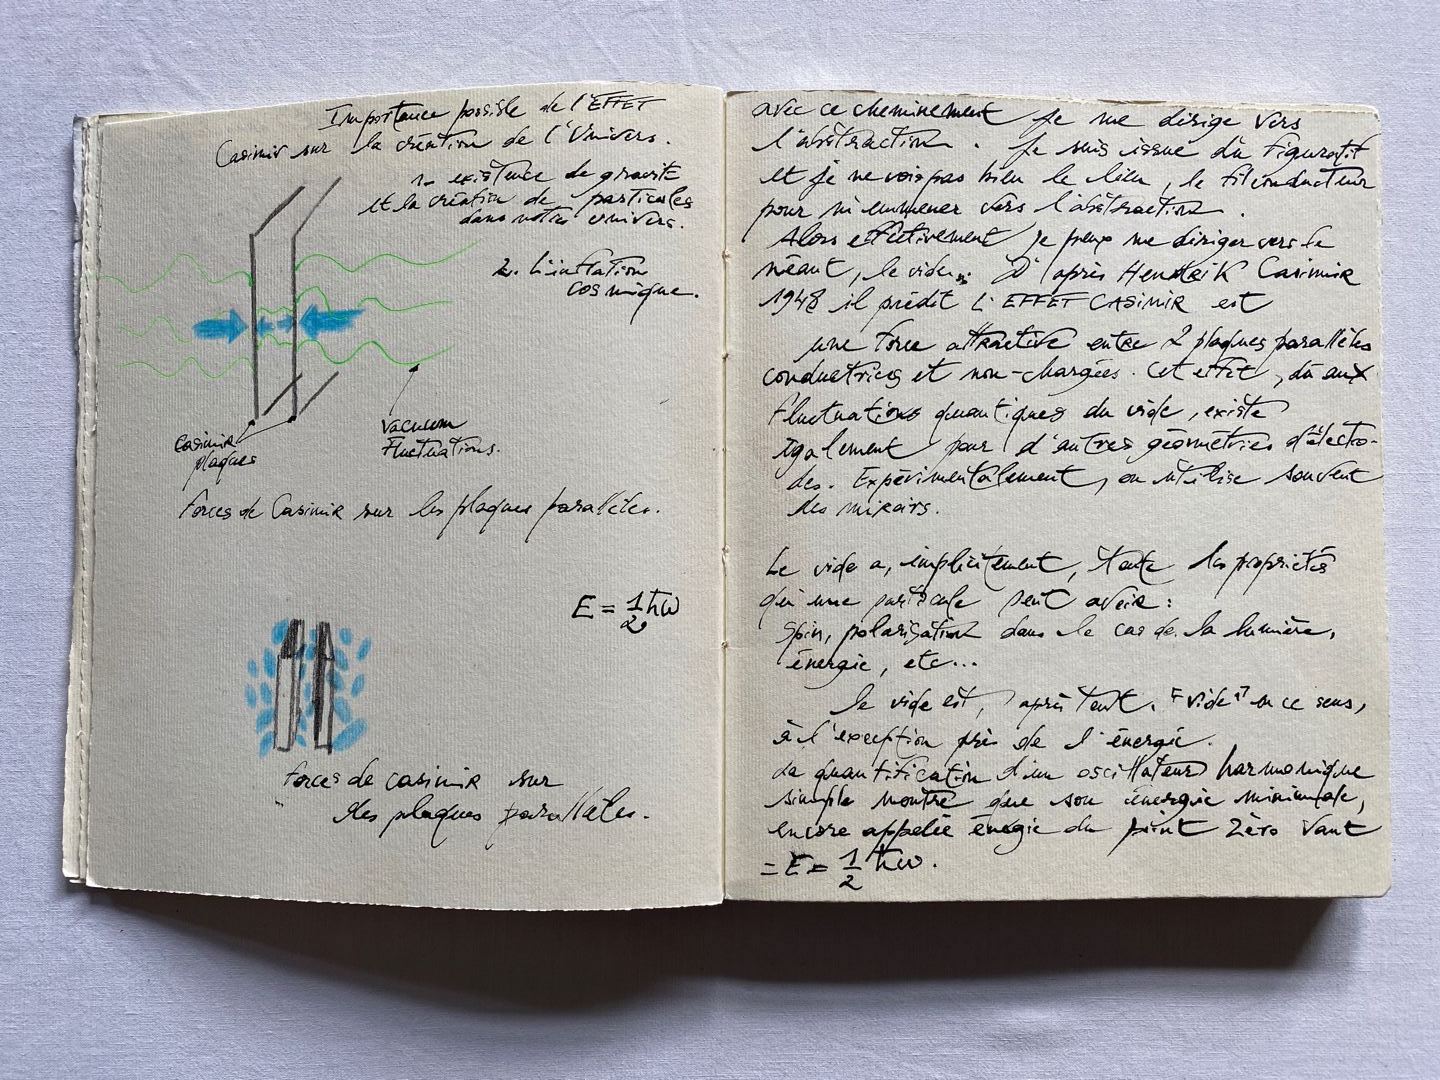 Importance possible de l'EFFET
Casimir sur la création de l'Univers.
1- existence de gravité
et la création de particules
dans notre univers.
2. L'inflation
cosmique.
Casimir
plaques
Vacuum
Fluctuations.
Forces de Casimir sur les plaques parallèles.
E = 1/2 ħω
Forces de casimir sur
des plaques parallèles.
avec ce cheminement je me dirige vers
l'abstraction. Je suis issue du Figuratif
et je ne vois pas bien le lien, le fil conducteur
pour m'emmener vers l'abstraction.
Alors effectivement je peux me diriger vers le
néant, le vide. D'après Hendrik Casimir
1948 il prédit L'EFFET CASIMIR est
une force attractive entre 2 plaques parallèles
conductrices et non-chargées. Cet effet, dû aux
fluctuations quantiques du vide, existe
également pour d'autres géométries d'électro-
des. Expérimentalement, on utilise souvent
des miroirs.
Le vide a, implicitement, toute les propriétés
qu'une particule peut avoir :
Spin, polarisation dans le cas de la lumière,
énergie, etc...
le vide est, après tout, "vide" en ce sens,
à l'exception près de l'énergie.
La quantification d'un oscillateur harmonique
simple montre que son énergie minimale,
encore appelée énergie du point Zéro Vaut
= E = 1/2 ħω.